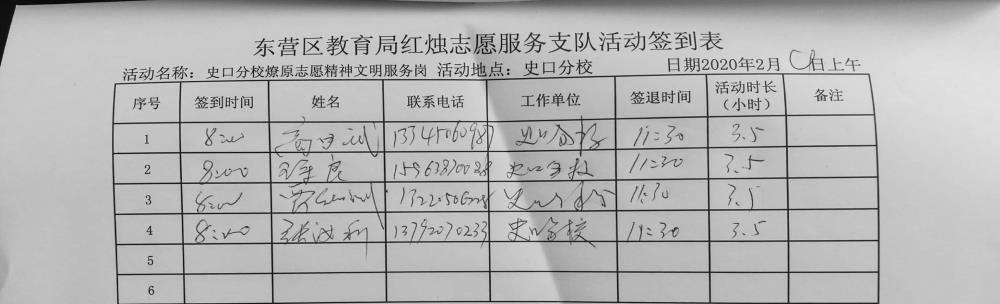 东营区教育局红烛志愿服务支队活动签到表
活动名称：史口分校燎原志愿精神文明服务岗 活动地点：史口分校 日期2020年2月 日上午
序号 签到时间 姓名 联系电话 工作单位 签退时间 活动时长（小时） 备注
1 8:00 史口分校 11:30 3.5
2 8:00 史口分校 11:30 3.5
3 8:00 史口分校 11:30 3.5
4 8:00 13792070233 史口分校 11:30 3.5
5
6